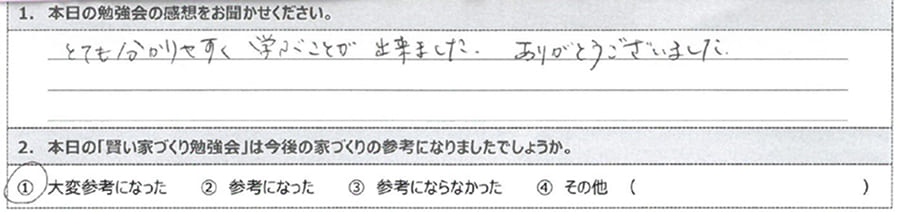 1. 本日の勉強会の感想をお聞かせください。
とても分かりやすく学ぶことが出来ました. ありがとうございました.
2. 本日の「賢い家づくり勉強会」は今後の家づくりの参考になりましたでしょうか。
① 大変参考になった ② 参考になった ③ 参考にならなかった ④ その他 ( )